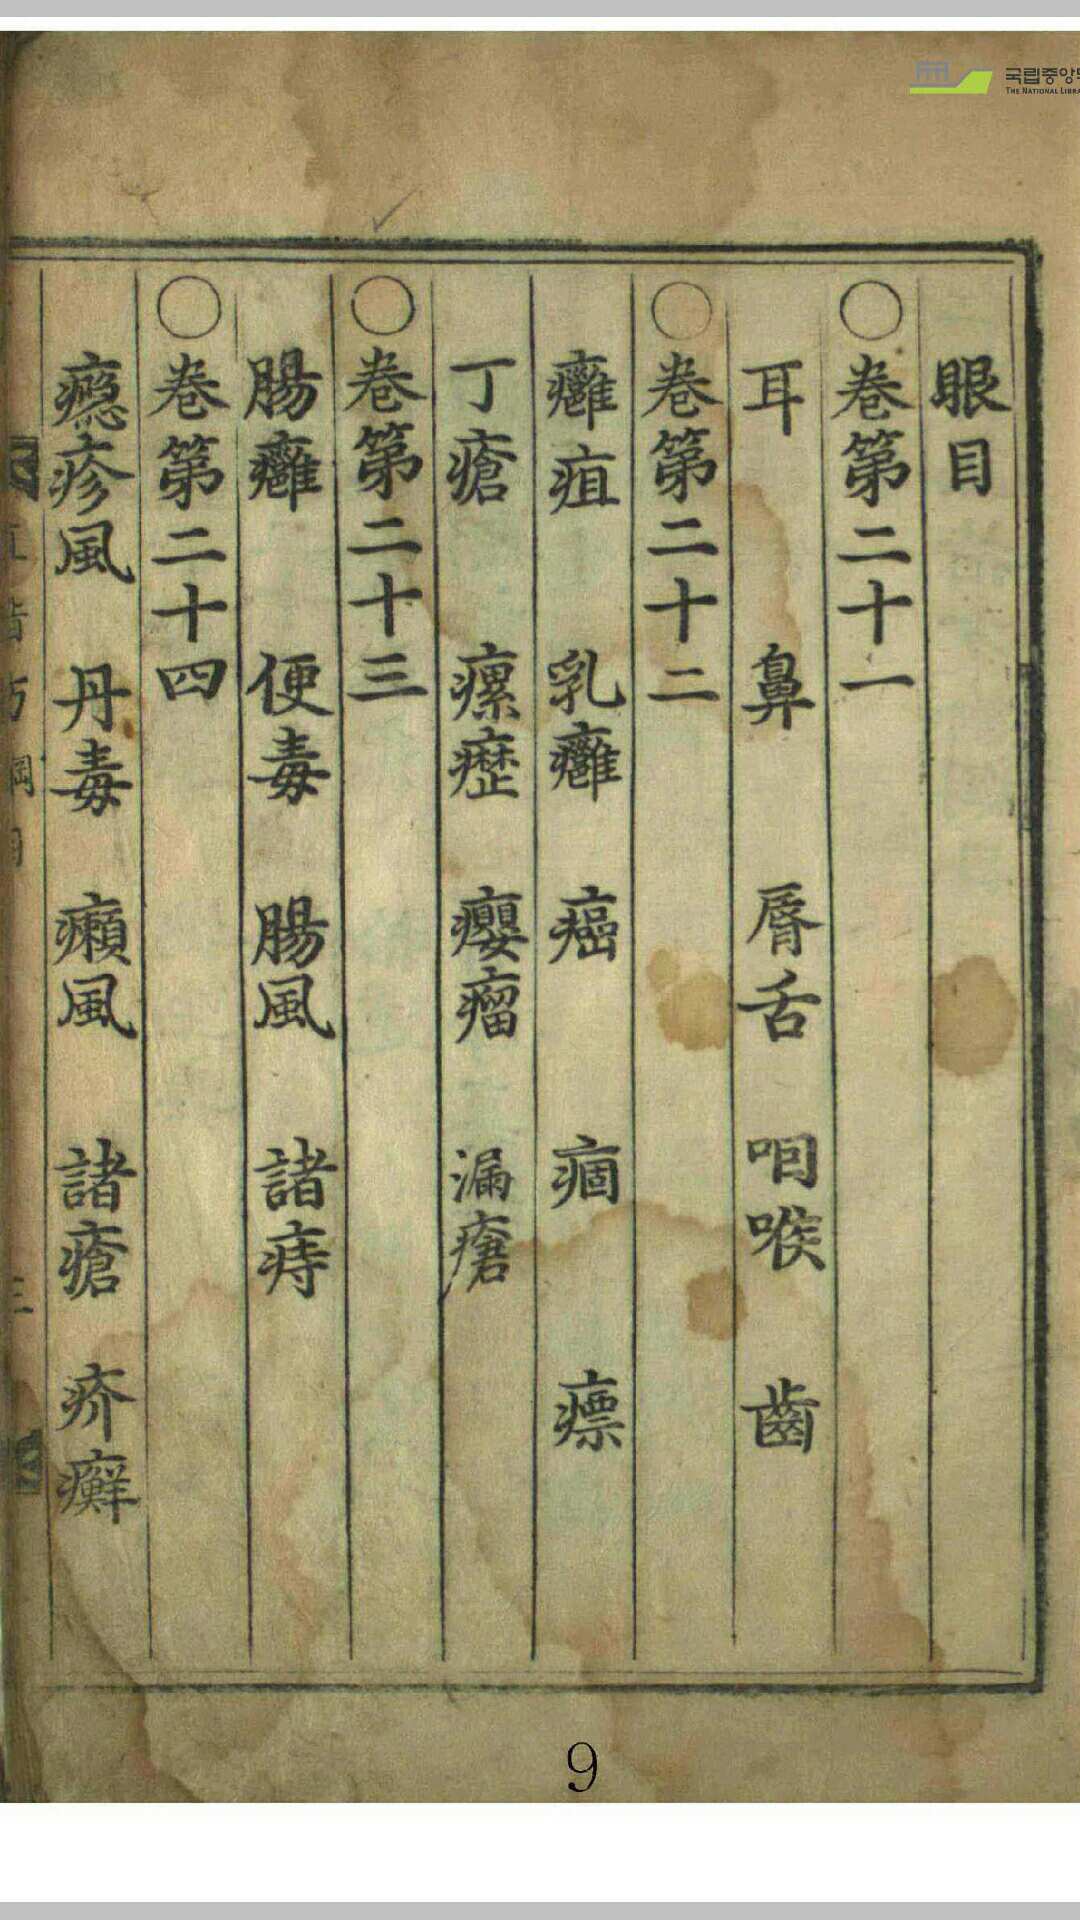 국립중앙
THE NATIONAL LIBRA
眼目
〇卷第二十一
耳 鼻 脣舌 咽喉 齒
〇卷第二十二
癰疽 乳癰 癌 痼 瘭
丁瘡 瘰癧 癭瘤 漏瘡
〇卷第二十三
腸癰 便毒 腸風 諸痔
〇卷第二十四
癮疹風 丹毒 癩風 諸瘡 疥癬
三
9